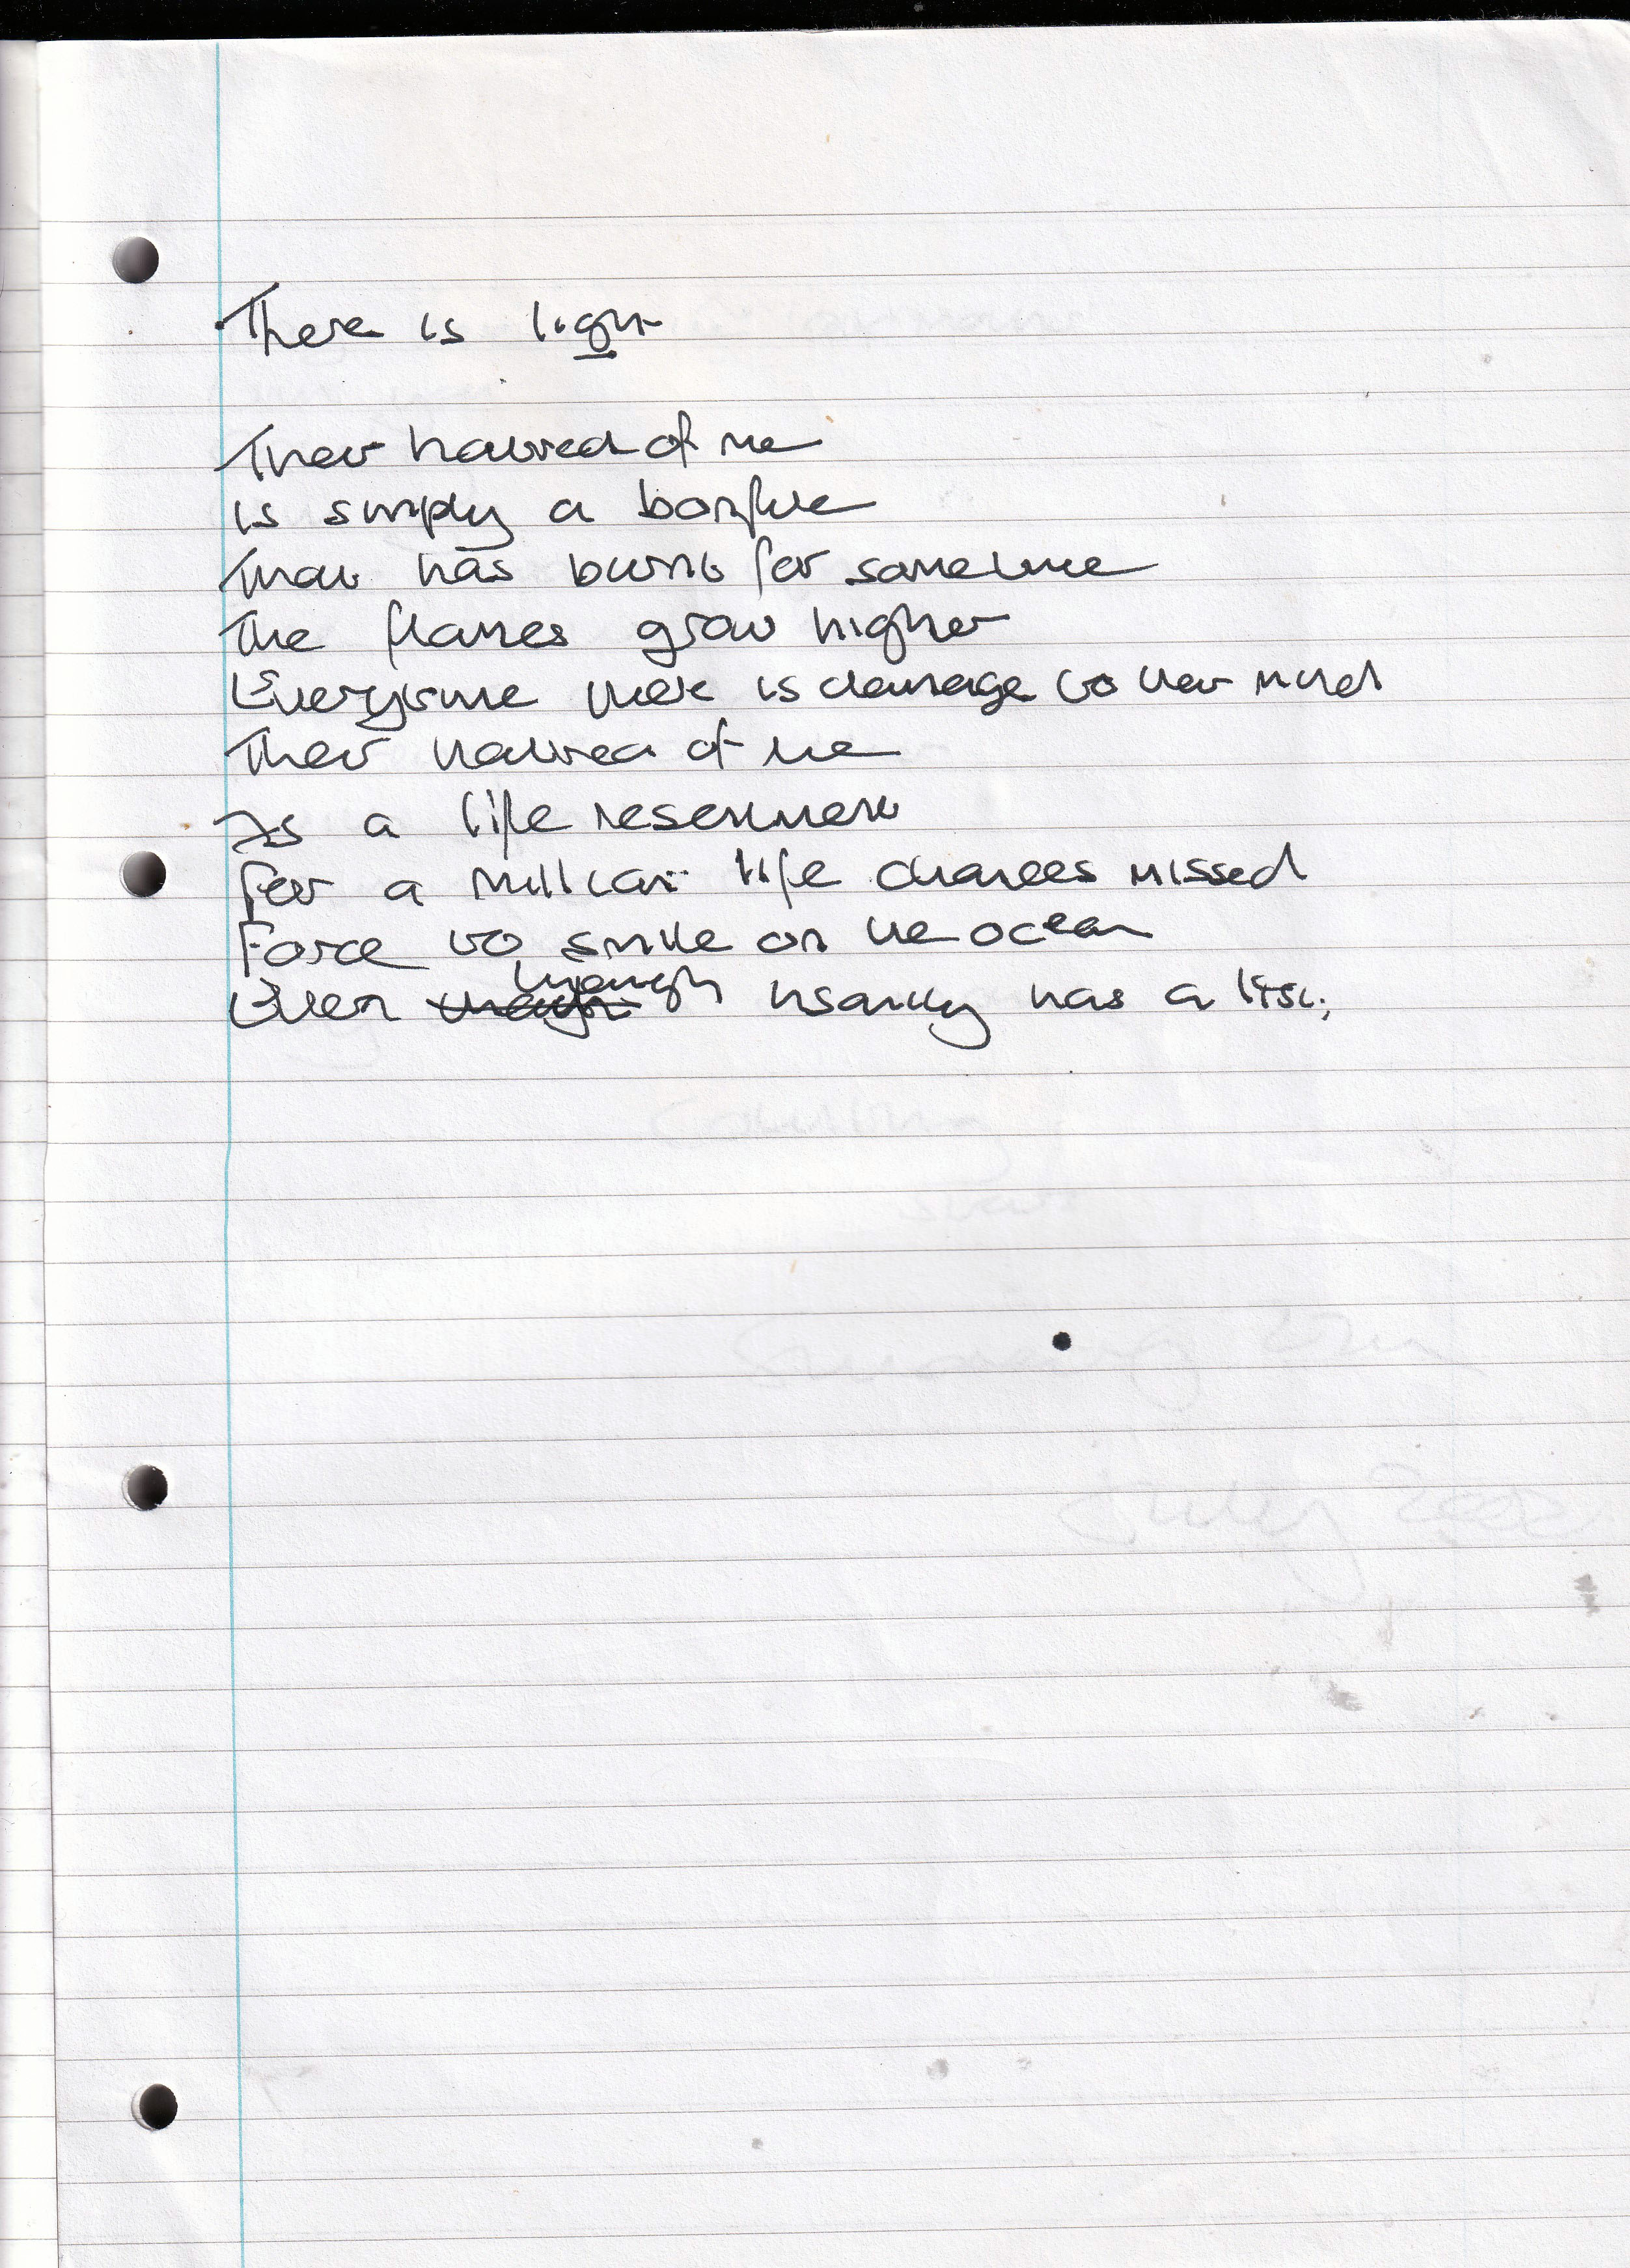 There is light
Their hatred of me
is simply a bonfire
That has burnt for sometime
The flames grow higher
Everytime there is damage to their mind
Their hatred of me
Is a life resentment
for a million life chances missed
Force to smile on the ocean
Even though insanity has a list,
July 2002